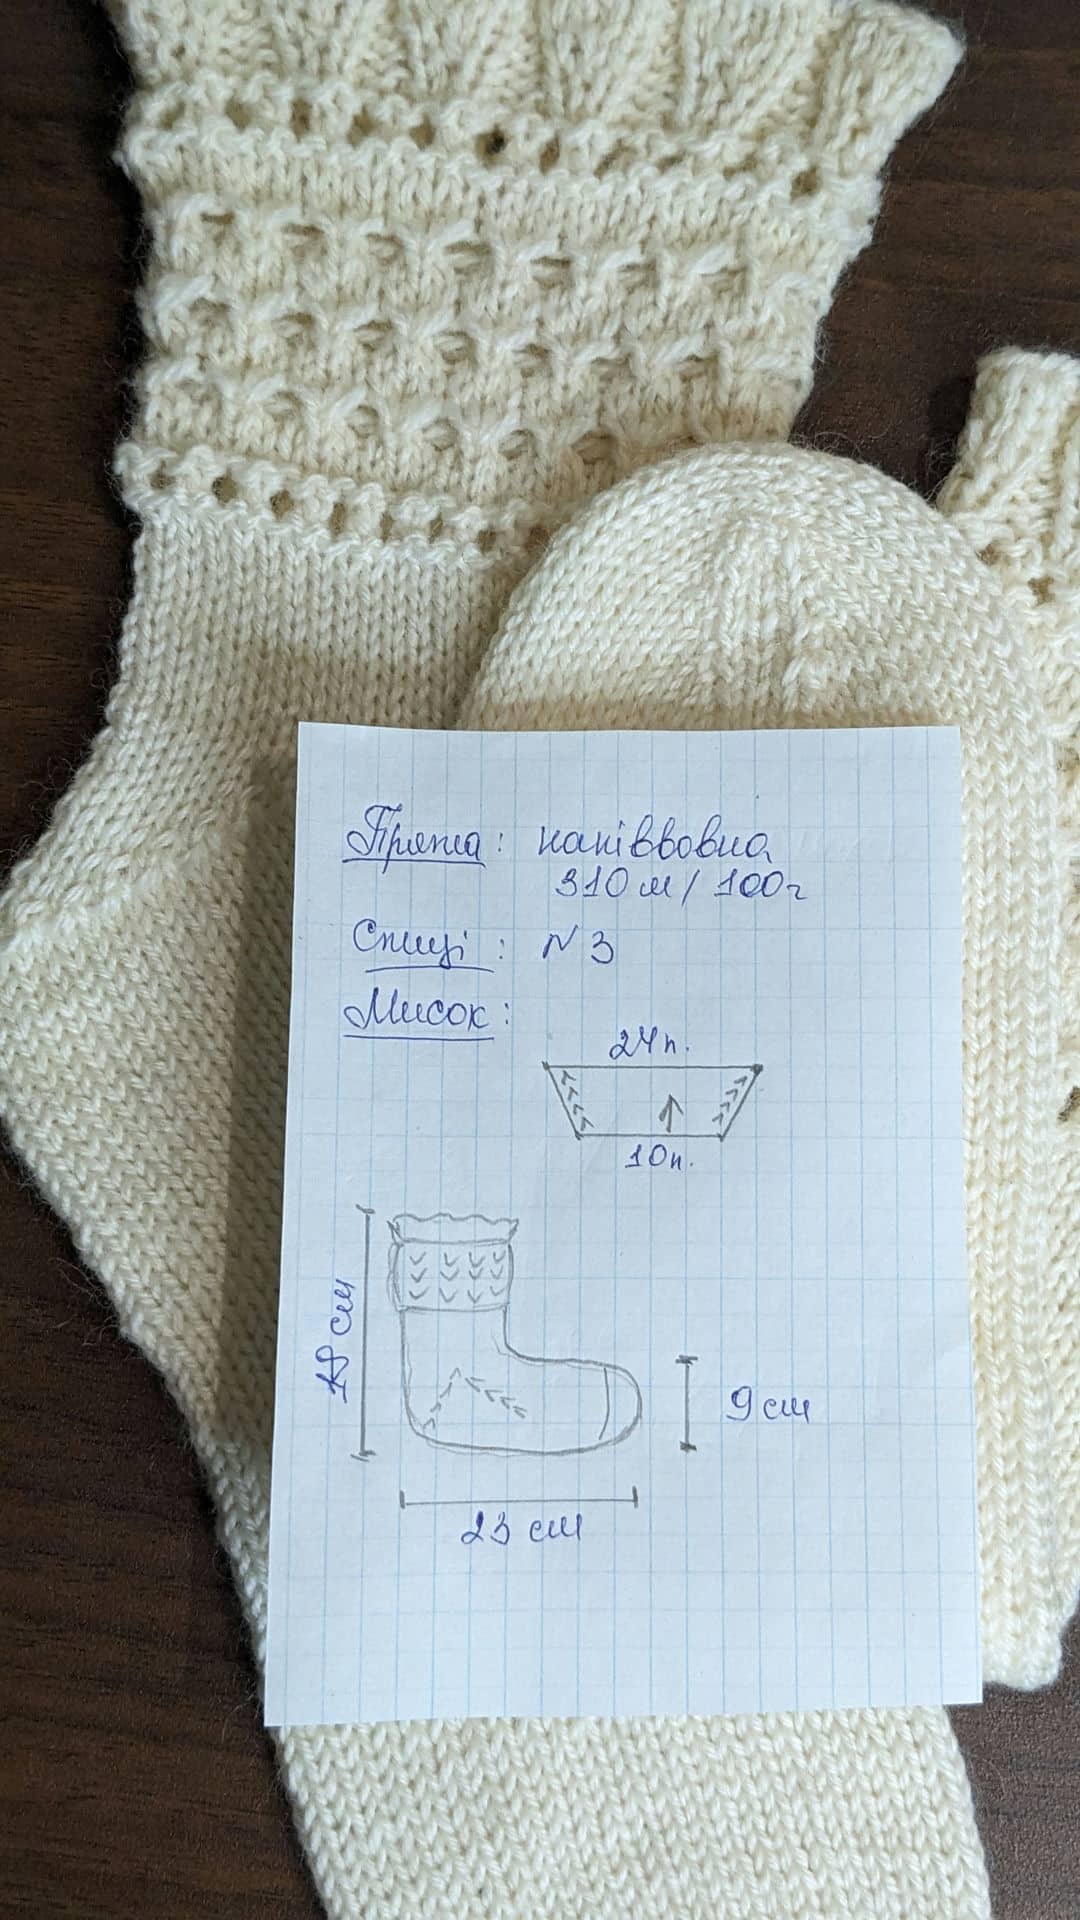 Пряжа: напіввовна
310 м/100г
Спиці: N 3
Мисок:
24 п.
10 п.
18 см
9 см
23 см